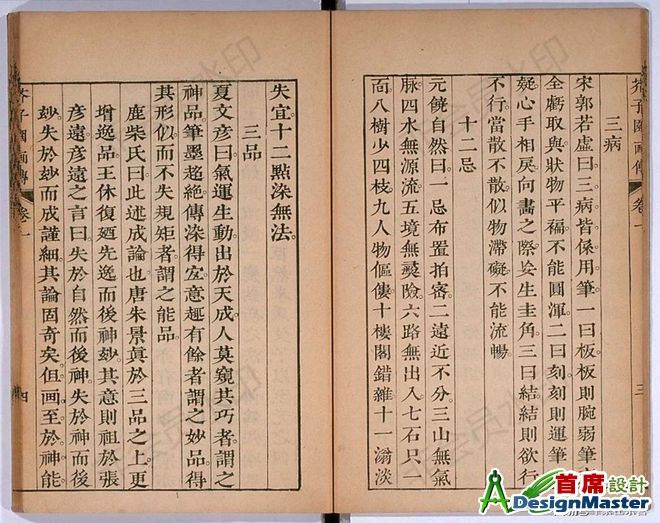 芥子園画傳 卷一 三
三病
宋郭若虛曰三病皆係用筆一曰板板則腕弱筆
全虧取與狀物平褊不能圓渾二曰刻刻則運筆
疑心手相戾向畫之際妄生圭角三曰結結則欲行
不行當散不散似物滯礙不能流暢
十二忌
元饒自然曰一忌布置拍密二遠近不分三山無氣
脉四水無源流五境無夷險六路無出入七石只一
面八樹少四枝九人物傴僂十樓閣錯雜十一滃淡
失宜十二點染無法
三品
夏文彥曰氣運生動出於天成人莫窺其巧者謂之
神品筆墨超絶傳染得宜意趣有餘者謂之妙品得
其形似而不失規矩者謂之能品
鹿柴氏曰此述成論也唐朱景眞於三品之上更
增逸品王休復廼先逸而後神妙其意則祖於張
彥遠彥遠之言曰失於自然而後神失於神而後
妙失於妙而成謹細其論固奇矣但画至於神能
芥子園画傳 卷一 四
首席設計
DesignMaster